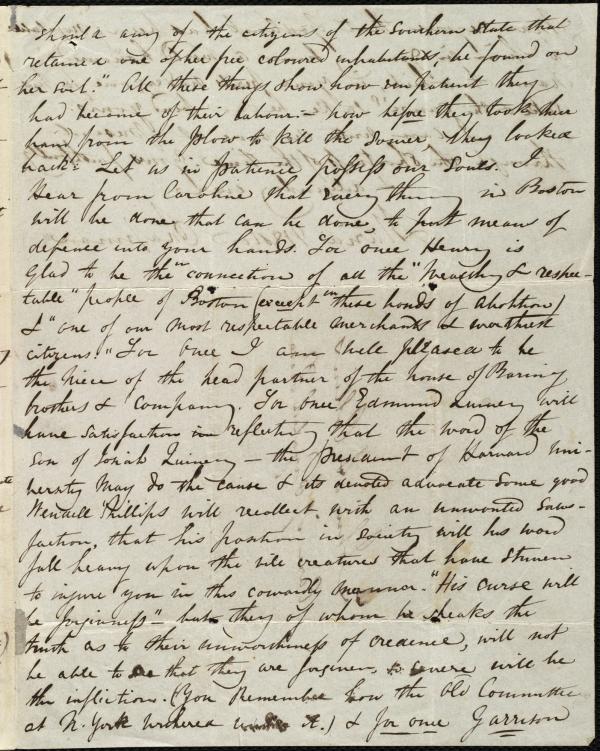 Should any of the citizens of the Southern State that
retained one of her free coloured inhabitants, be found on
her soil." All these things show how impatient they
had become of their labour:— how before they took their
hand from the plow to kill the sower they looked
back: Let us in patience possess our Souls. I
Hear from Caroline that every thing in Boston
will be done that can be done, to put means of
defence into your hands. For once Henry is
Glad to be the connection of all the "wealthy & respec-
table" people of Boston (except in these bonds of abolition)
& "one of our most respectable merchants & worthiest
citizens." For Once I am Well pleased to be
the Niece of the head partner of the house of Baring
brothers & Company. For once Edmund Quincy will
have satisfaction in reflecting that the word of the
son of Josiah Quincy — the president of Harvard Uni-
versity may do the cause & its devoted advocate some good
Wendell Phillips will recollect with an unwonted satis-
faction, that his position in society will his word
fall heavy upon the vile creatures that have striven
to injure you in this cowardly manner. "His curse will
be forgiveness" — but they of whom he speaks the
truth as to their unworthiness of credence, will not
be able to see that they are forgiven, so severe will be
the infliction. (You Remember how the Old Committee
at N. York withered under it.) & for once Garrison